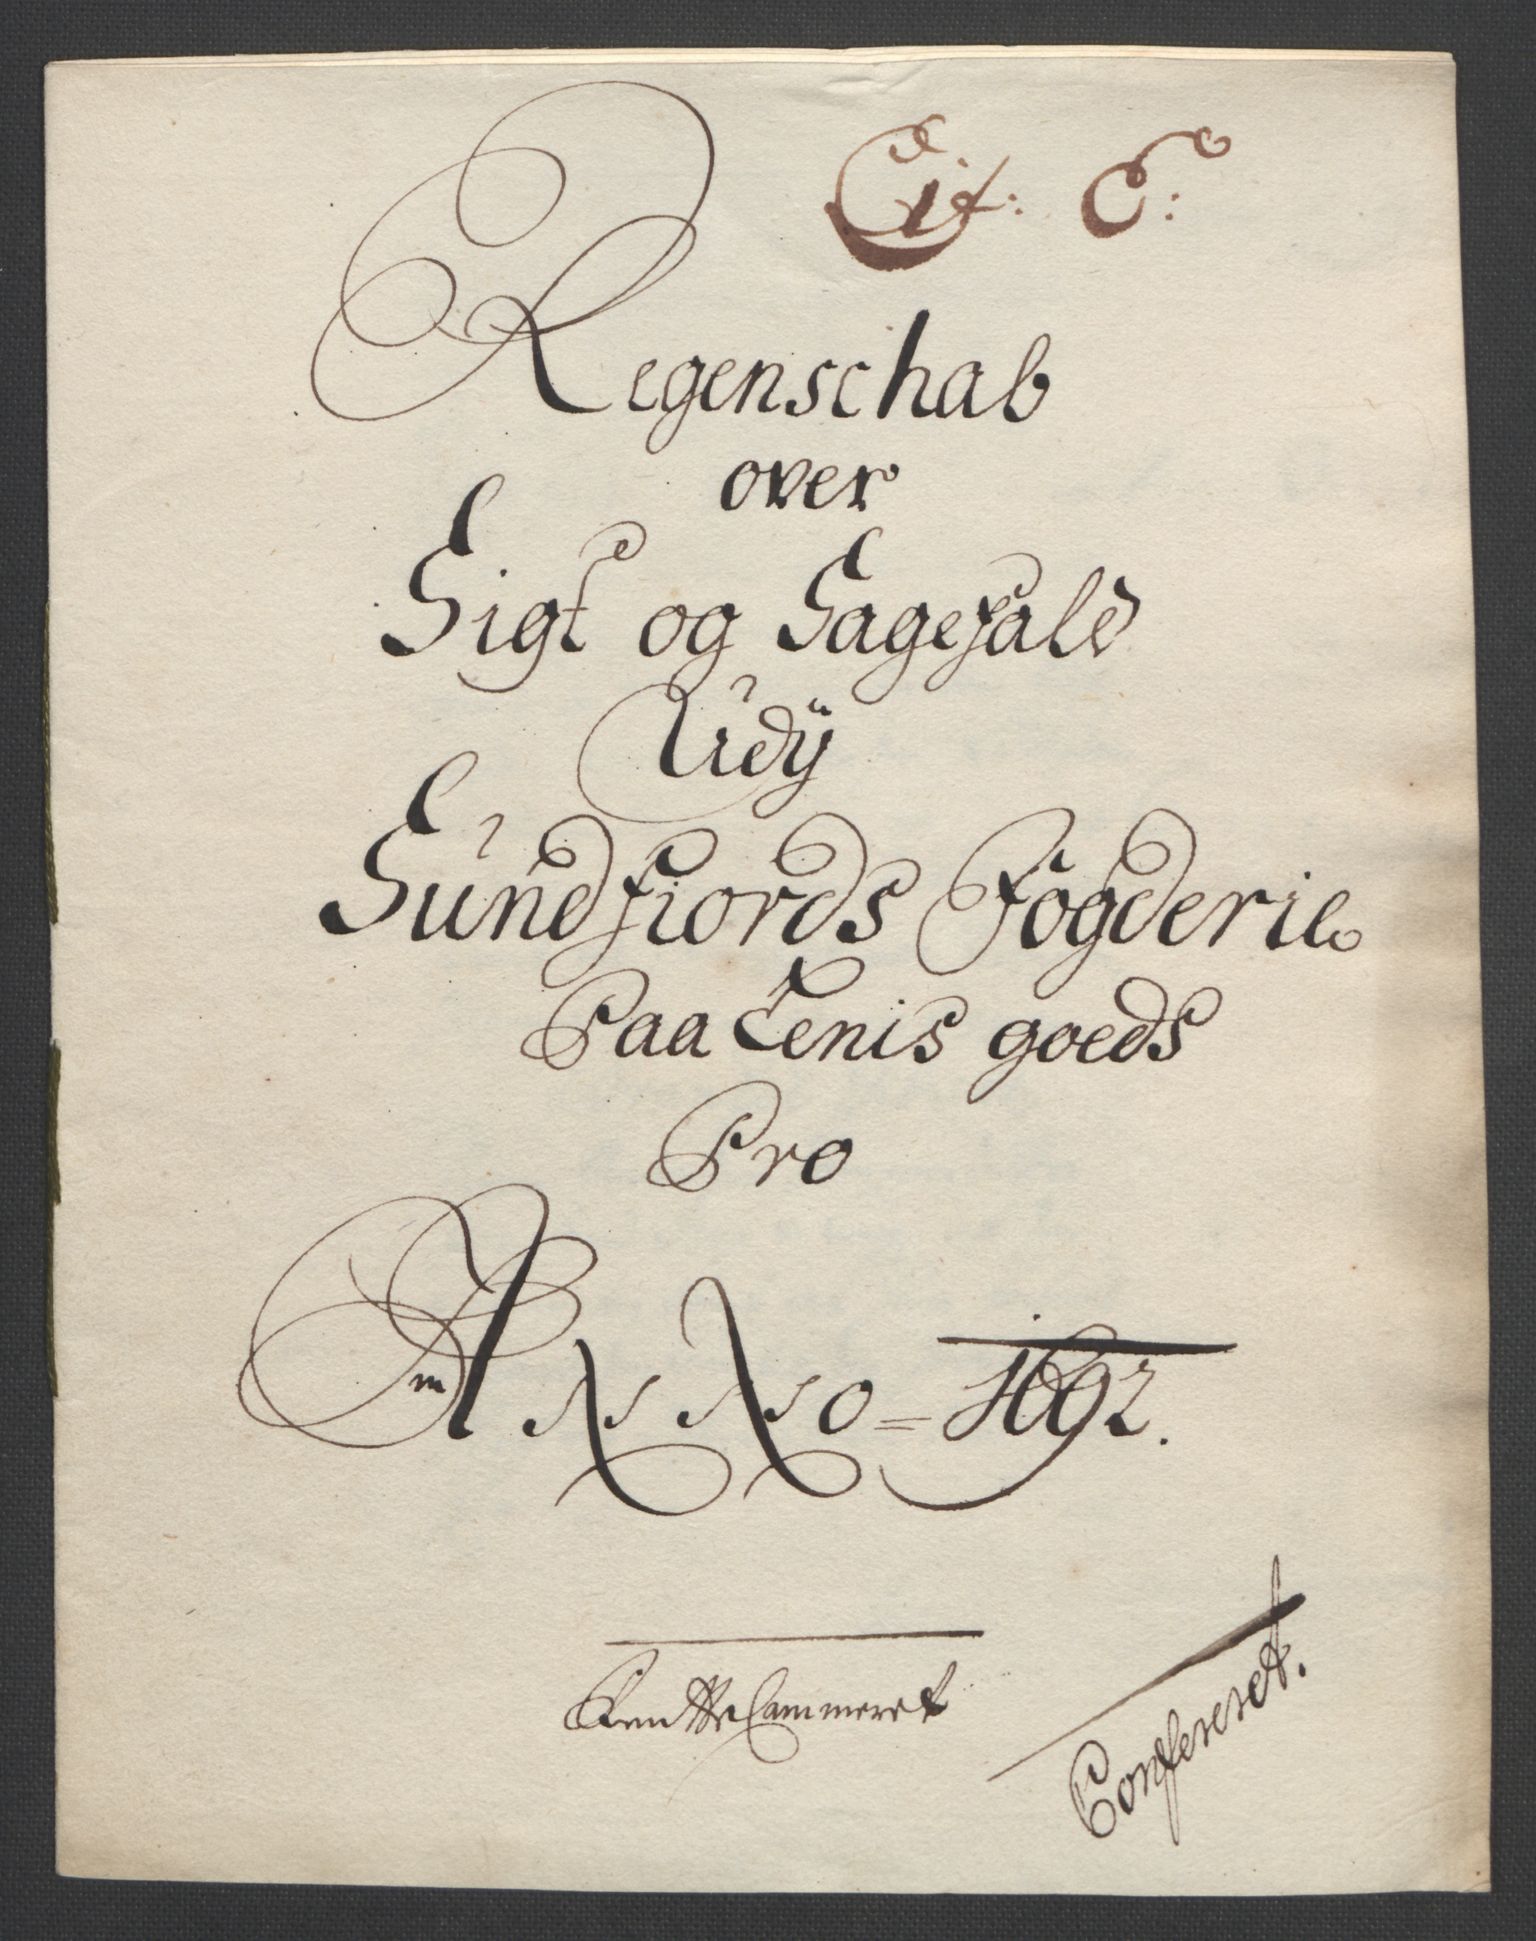 Lit: C:
Regenschab
over
Sigt og Sagefald
Udÿ
Sundfiords Fogderie
Paa Lenis goeds
Pro
Anno = 1692.
RentteCammeret
Confereret.